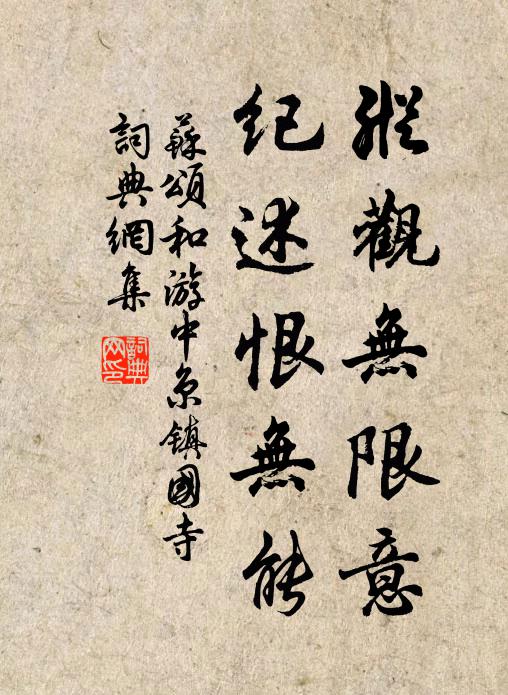 縱觀無限意
紀述恨無能
蘇頌和游中京鎮國寺
詞典網集
詞典網印